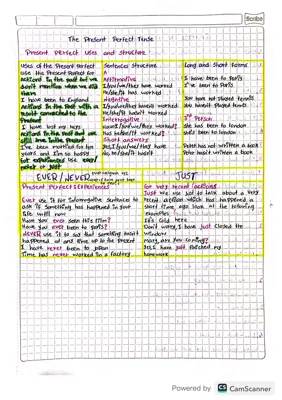 Scribe
The Present Perfect Tense
Present Perfect Uses and Structure
Uses of the Present Perfect
use the Present Perfect for
actions in the past but we
don't mention when we did
them
I have been to England
actions in the past with a
result connected to the
Present
I have lost my keys
actions in the past but we
still are in the present
I've been married for ten
years and I'm so happy
for experiences use ever/
never or just
Sentences Structure
Affirmative
I/you/we/they have worked
he/she/it has worked
Negative
I/you/we/they haven't worked
he/she/it hasn't worked
Interrogative
have I/you/we/they worked?
has he/she/it worked?
Short answers
yes, I/you/we/they have
No, he/she/it hasn't
Long and Short forms
I have been to Paris
I've been to Paris
You have not stayed tennis
You haven't stayed tennis
3rd Person
She has been to London
She's been to London
Peter has not written a book
Peter hasn't written a book
EVER/NEVER
JUST
Present Perfect & Experiences
Ever use it for interrogative sentences to
ask if something has happened in your
life until now
Have you ever seen this film?
Have you ever been to Paris?
Never use it to say that something hasn't
happened at any time up to the present
I have never been to Japan
Tina has never worked in a factory
for very recent actions
Just we use Just to talk about a very
recent action which has happened a
short time ago. look at the following
examples
It's cold here
Don't worry, I have just closed the
window
Mary, are you coming?
Yes, I have just finished my
homework
Powered by CS CamScanner